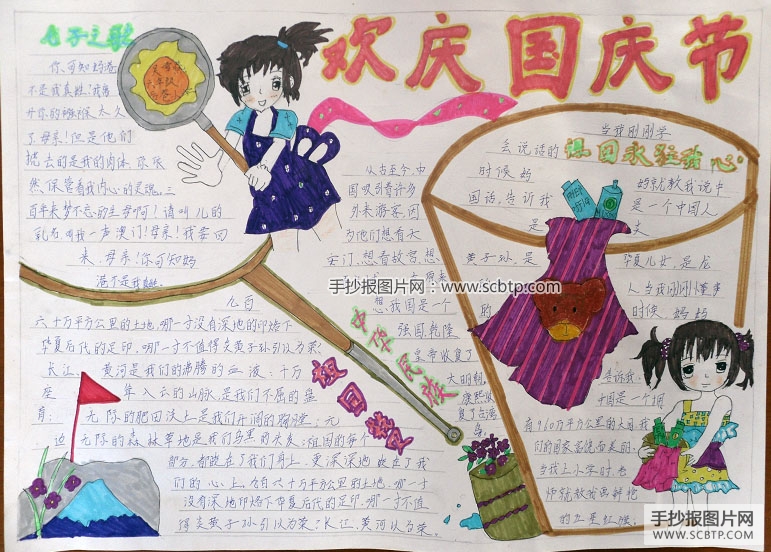 欢庆国庆节
七子之歌
你可知妈港
不是我真姓?我离
开你的襁褓太久
了母亲!但是他们
掳去的是我的肉体 你依
然保管着我内心的灵魂。三
百年来梦不忘的生母啊!请叫儿的
乳名 叫我一声澳门!母亲!我要回
来,母亲!你可知妈
港不是我真姓
九百
六十万平方公里的土地,哪一寸没有深地的印烙下
华夏后代的足印,哪一寸不值得炎黄子孙引以为荣?
长江、黄河是我们的沸腾的血液;千万
座 耸入云的山脉,是我们不屈的脊
育; 无际的肥田沃土是我们开阔的胸膛;无
边无际的森林草地是我们
祖国的每个
部分,都
在了我们身上,更深深地
在了我
们的心上。九百六十万平方公里的土地,哪一寸
没有深地印烙下华夏后代的足印,哪一寸不值
得炎黄子孙引以为荣?长江、黄河以为荣。
从古至今,中
国吸引着许多
外来游客,因
为他们想看天
安门,想看故宫,想
想我国是一个
强国,乾隆
皇帝收复了
大明朝,
康熙收
复了台湾
中华民族
祖国永驻我心
当我刚刚学
会说话的时候 妈妈就教我说中
国话,告诉我 是一个中国人
是 炎
黄子孙,是 华夏儿女,是龙
的 人 当我刚刚懂事
时候 妈妈
告诉我:
中国是一个拥
有960万平方公里的大国 我
们的国家富饶而美丽;
当我上小学时,老
师就教我画鲜艳
的五星红旗;
手抄报图片网:www.scbtp.com
手抄报图片网
WWW.SCBTP.COM